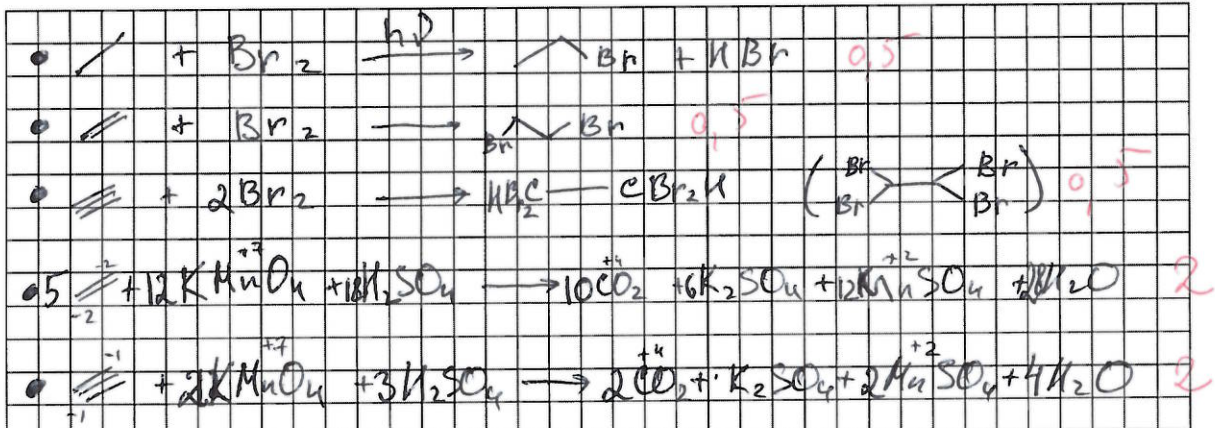 + Br₂ hν → Br + HBr 0,5
+ Br₂ → Br Br 0,5
+ 2Br₂ → HBr₂C — CBr₂H ( Br Br Br Br ) 0,5
5 -2 -2 + 12KMn⁺⁷O₄ + 18H₂SO₄ → 10C⁺⁴O₂ + 6K₂SO₄ + 12Mn⁺²SO₄ + 28H₂O 2
-1 -1 + 2KMn⁺⁷O₄ + 3H₂SO₄ → 2C⁺⁴O₂ + K₂SO₄ + 2Mn⁺²SO₄ + 4H₂O 2